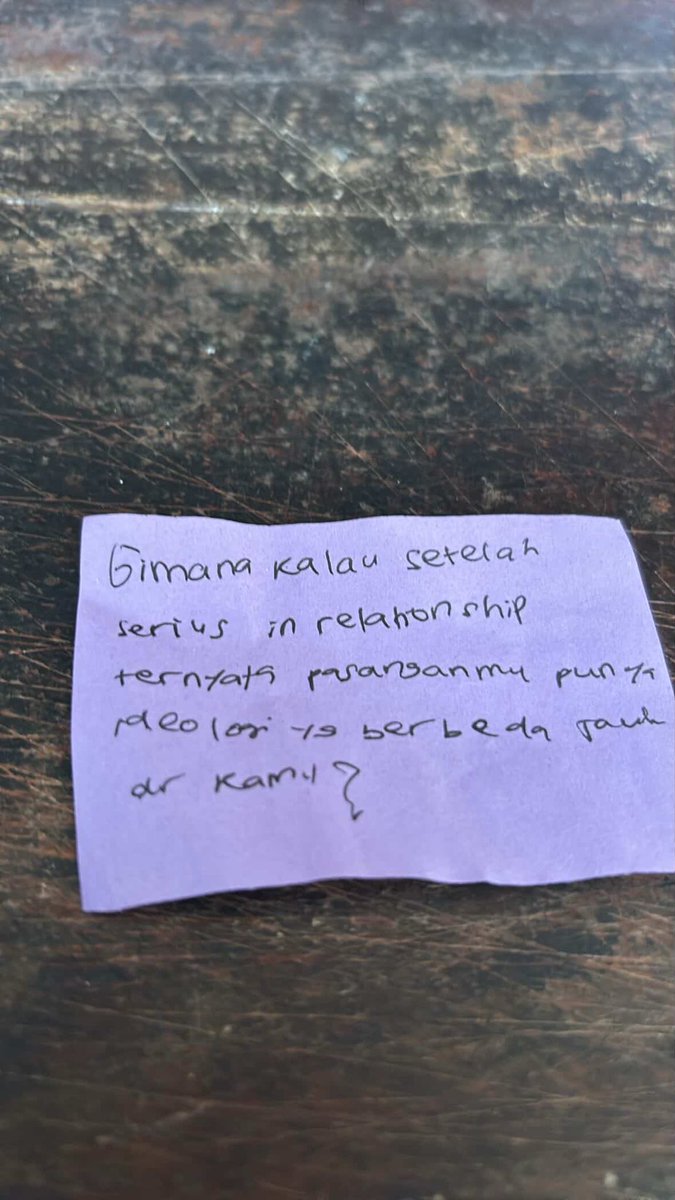 Gimana kalau setelah
serius in relationship
ternyata pasanganmu punya
ideologi yg berbeda jauh
dr kamu?